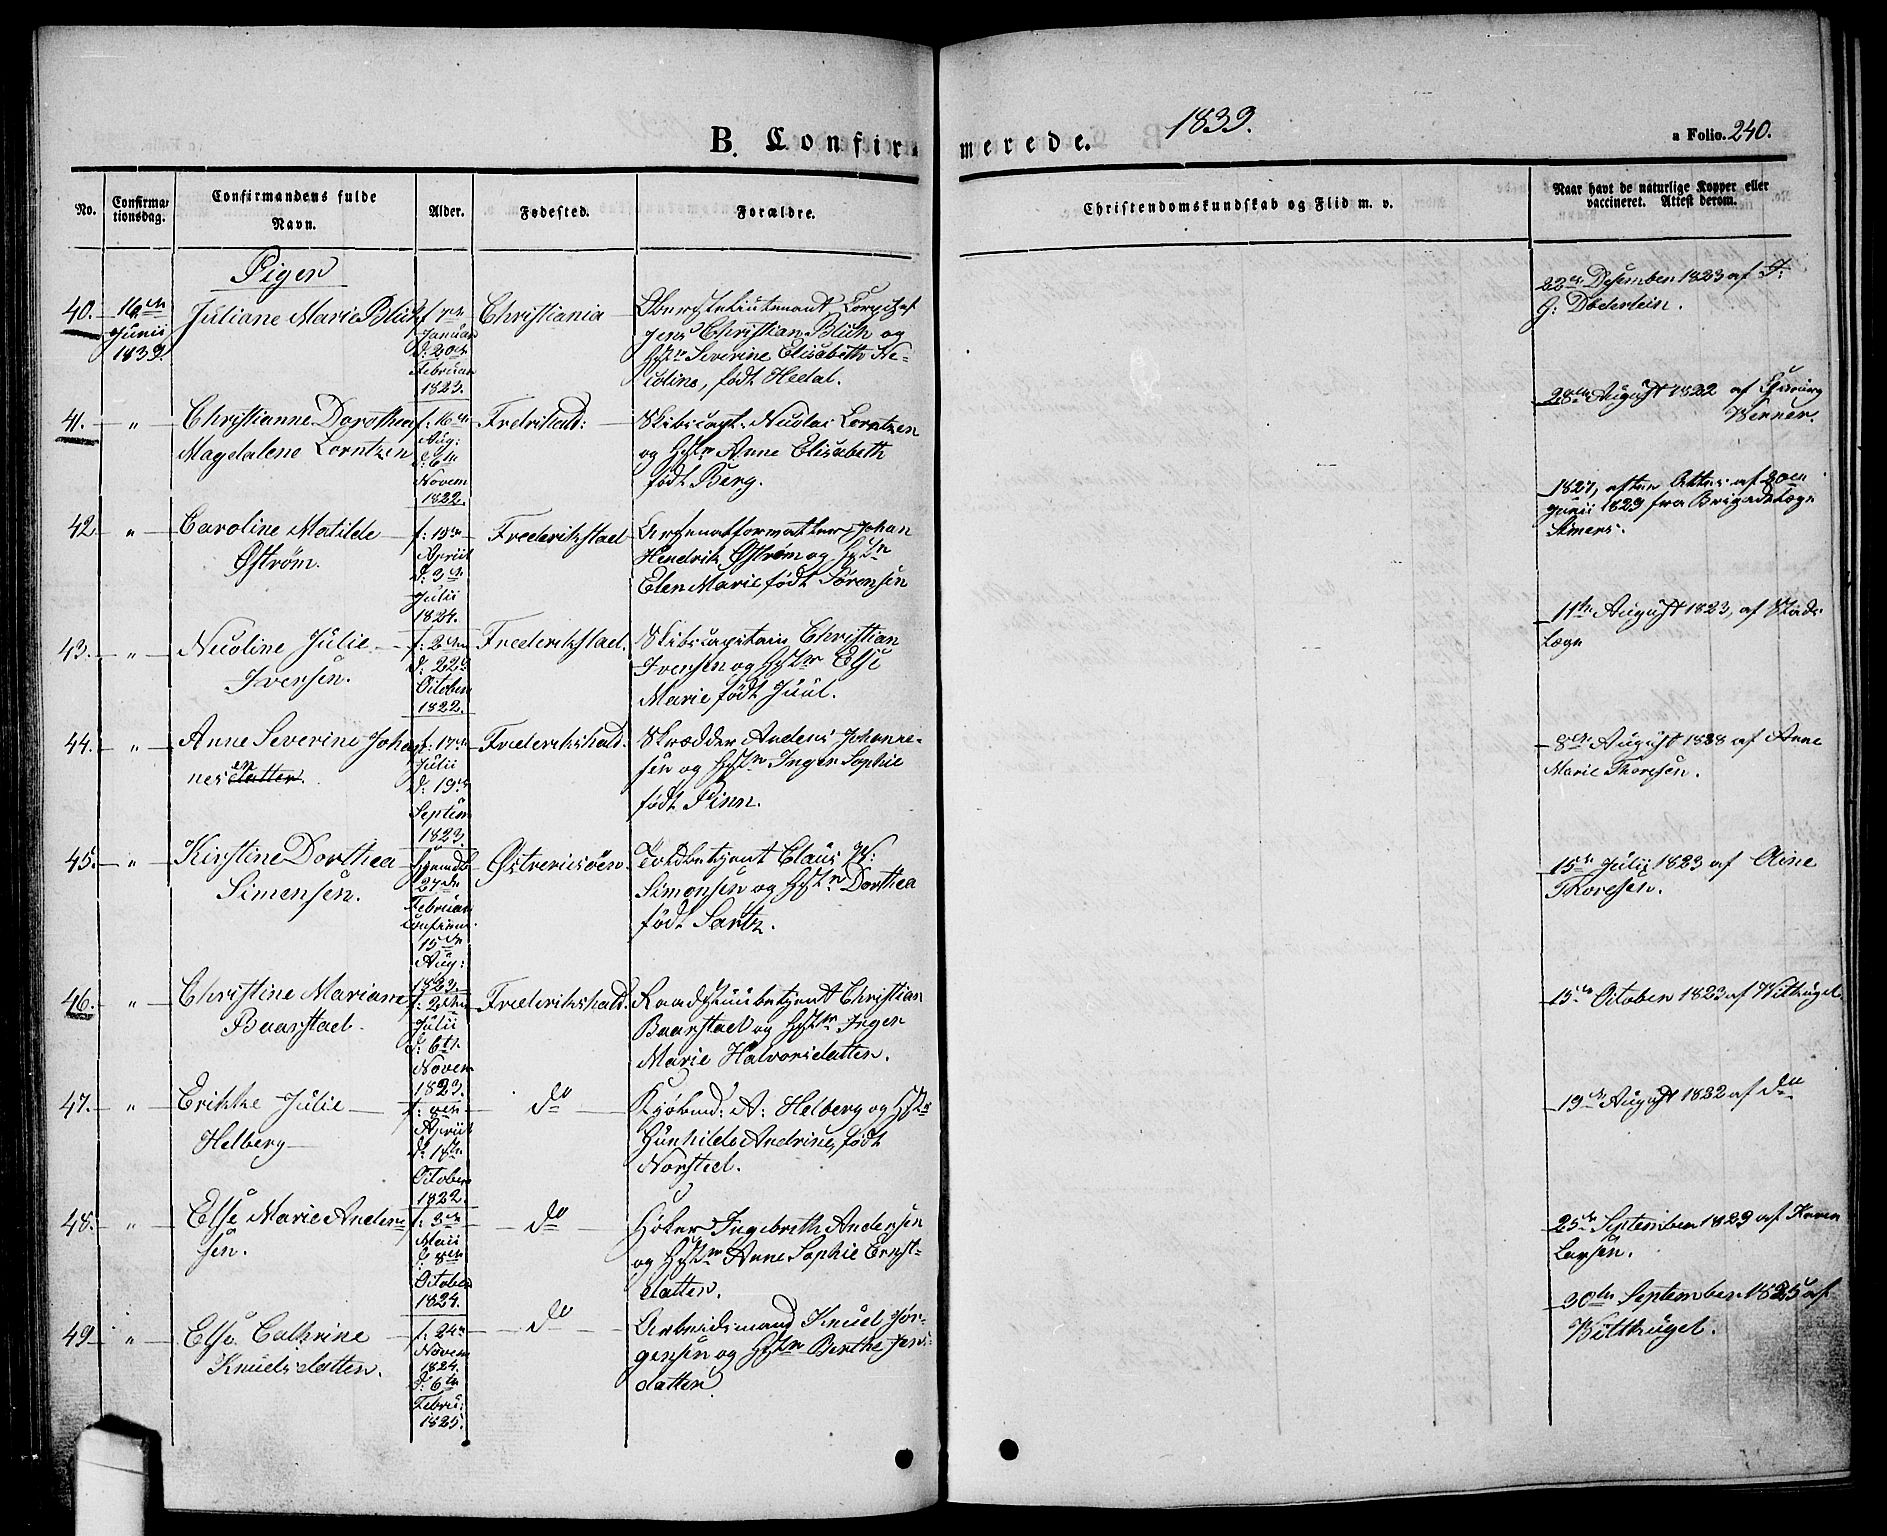 B. Confirmerede. 1839.
a Folio. 240.
No.
Confirma-
tionsdag.
Confirmandens fulde
Navn.
Alder.
Fødested.
Forældre.
Christendomskundskab og Flid m. v.
Naar havt de naturlige Kopper eller
vaccineret. Attest derom.
Piger
40.
16de
Junii
1839.
Juliane Marie Blich
Januar
Februar
1823.
Christiania
Oberstelieutenant
Christian Blich og
Severine Elisabeth Ni-
coline, født Hedal.
22de Desember 1823 af
G: Døderlein.
41. "
Christianne Dorothea
Magdalene Lorntzen
f: 16de
Aug:
d: 6te
Novem
1822.
Fredrikshald:
Skibscapt: Nicolai Lorntzen
og Hstr Anne Elisabeth
født Berg.
28de August 1822 af
Werner.
42 "
Caroline Matilde
Østrøm.
f: 19de
April
d: 3de
Julii
1824.
Frederikstad
Johan
Hendrik Østrøm og Hstr
Elen Marie født Sørensen
1827, efter Attest af 20en
Junii 1829 fra Brigadelæge
43. "
Nicoline Julie
Iversen.
f: 2den
d: 22de
October
1822.
Frederikstad.
Skibscapitain Christian
Iversen og Hstr Else
Marie født Juul.
11te August 1823, af Stads
læge
44. "
Anne Severine Johan
nesdatter. en
f: 17de
Julii
d: 19de
Septem
1823
Frederikshald.
Skrædder Anders Johanne-
sen og Hstr Inger Sophie
født Pinn.
8de August 1828 af Anne
Marie Thoresen.
45. "
Kirstine Dorthea
Simensen.
Hjemdb
27de
Februar
confirm.
15de
Aug:
1823.
Østerriisöer.
Toldbetjent Claus
Simonsen og Hstr Dorthea
født Sartz.
15de Julii 1823 af Aine
Thoresen.
46. "
Christine Mariane
Baarstad.
f: 2den
Julii
d: 6te
Novem
1823.
Frederikshald.
Raadstuubetjent Christian
Baarstad og Hstr Inger
Marie Halvorsdatter.
15de October 1823 af Witthugel
47. "
Erikke Julie
Helberg
April
October
1822.
do
Kjøbmd: A: Helberg og Hstr
Gunhilde Andrine, født
Norsted.
19de August 1822 af do
48. "
Else Marie Ander
sen.
f: 3de
Maii
October
1824.
do
Høker Ingebreth Andersen
og Hstr Anne Sophie Ernst-
datter.
25de September 1829 af Karen
Larsen.
49 "
Else Cathrine
Knudsdatter.
f: 24de
Novem
1824.
d: 6te
Febru:
1825.
do
Arbeidsmand Knud Jør-
gensen og Hstr Berthe Jens-
datter
30te September 1825 af
Witthugel.